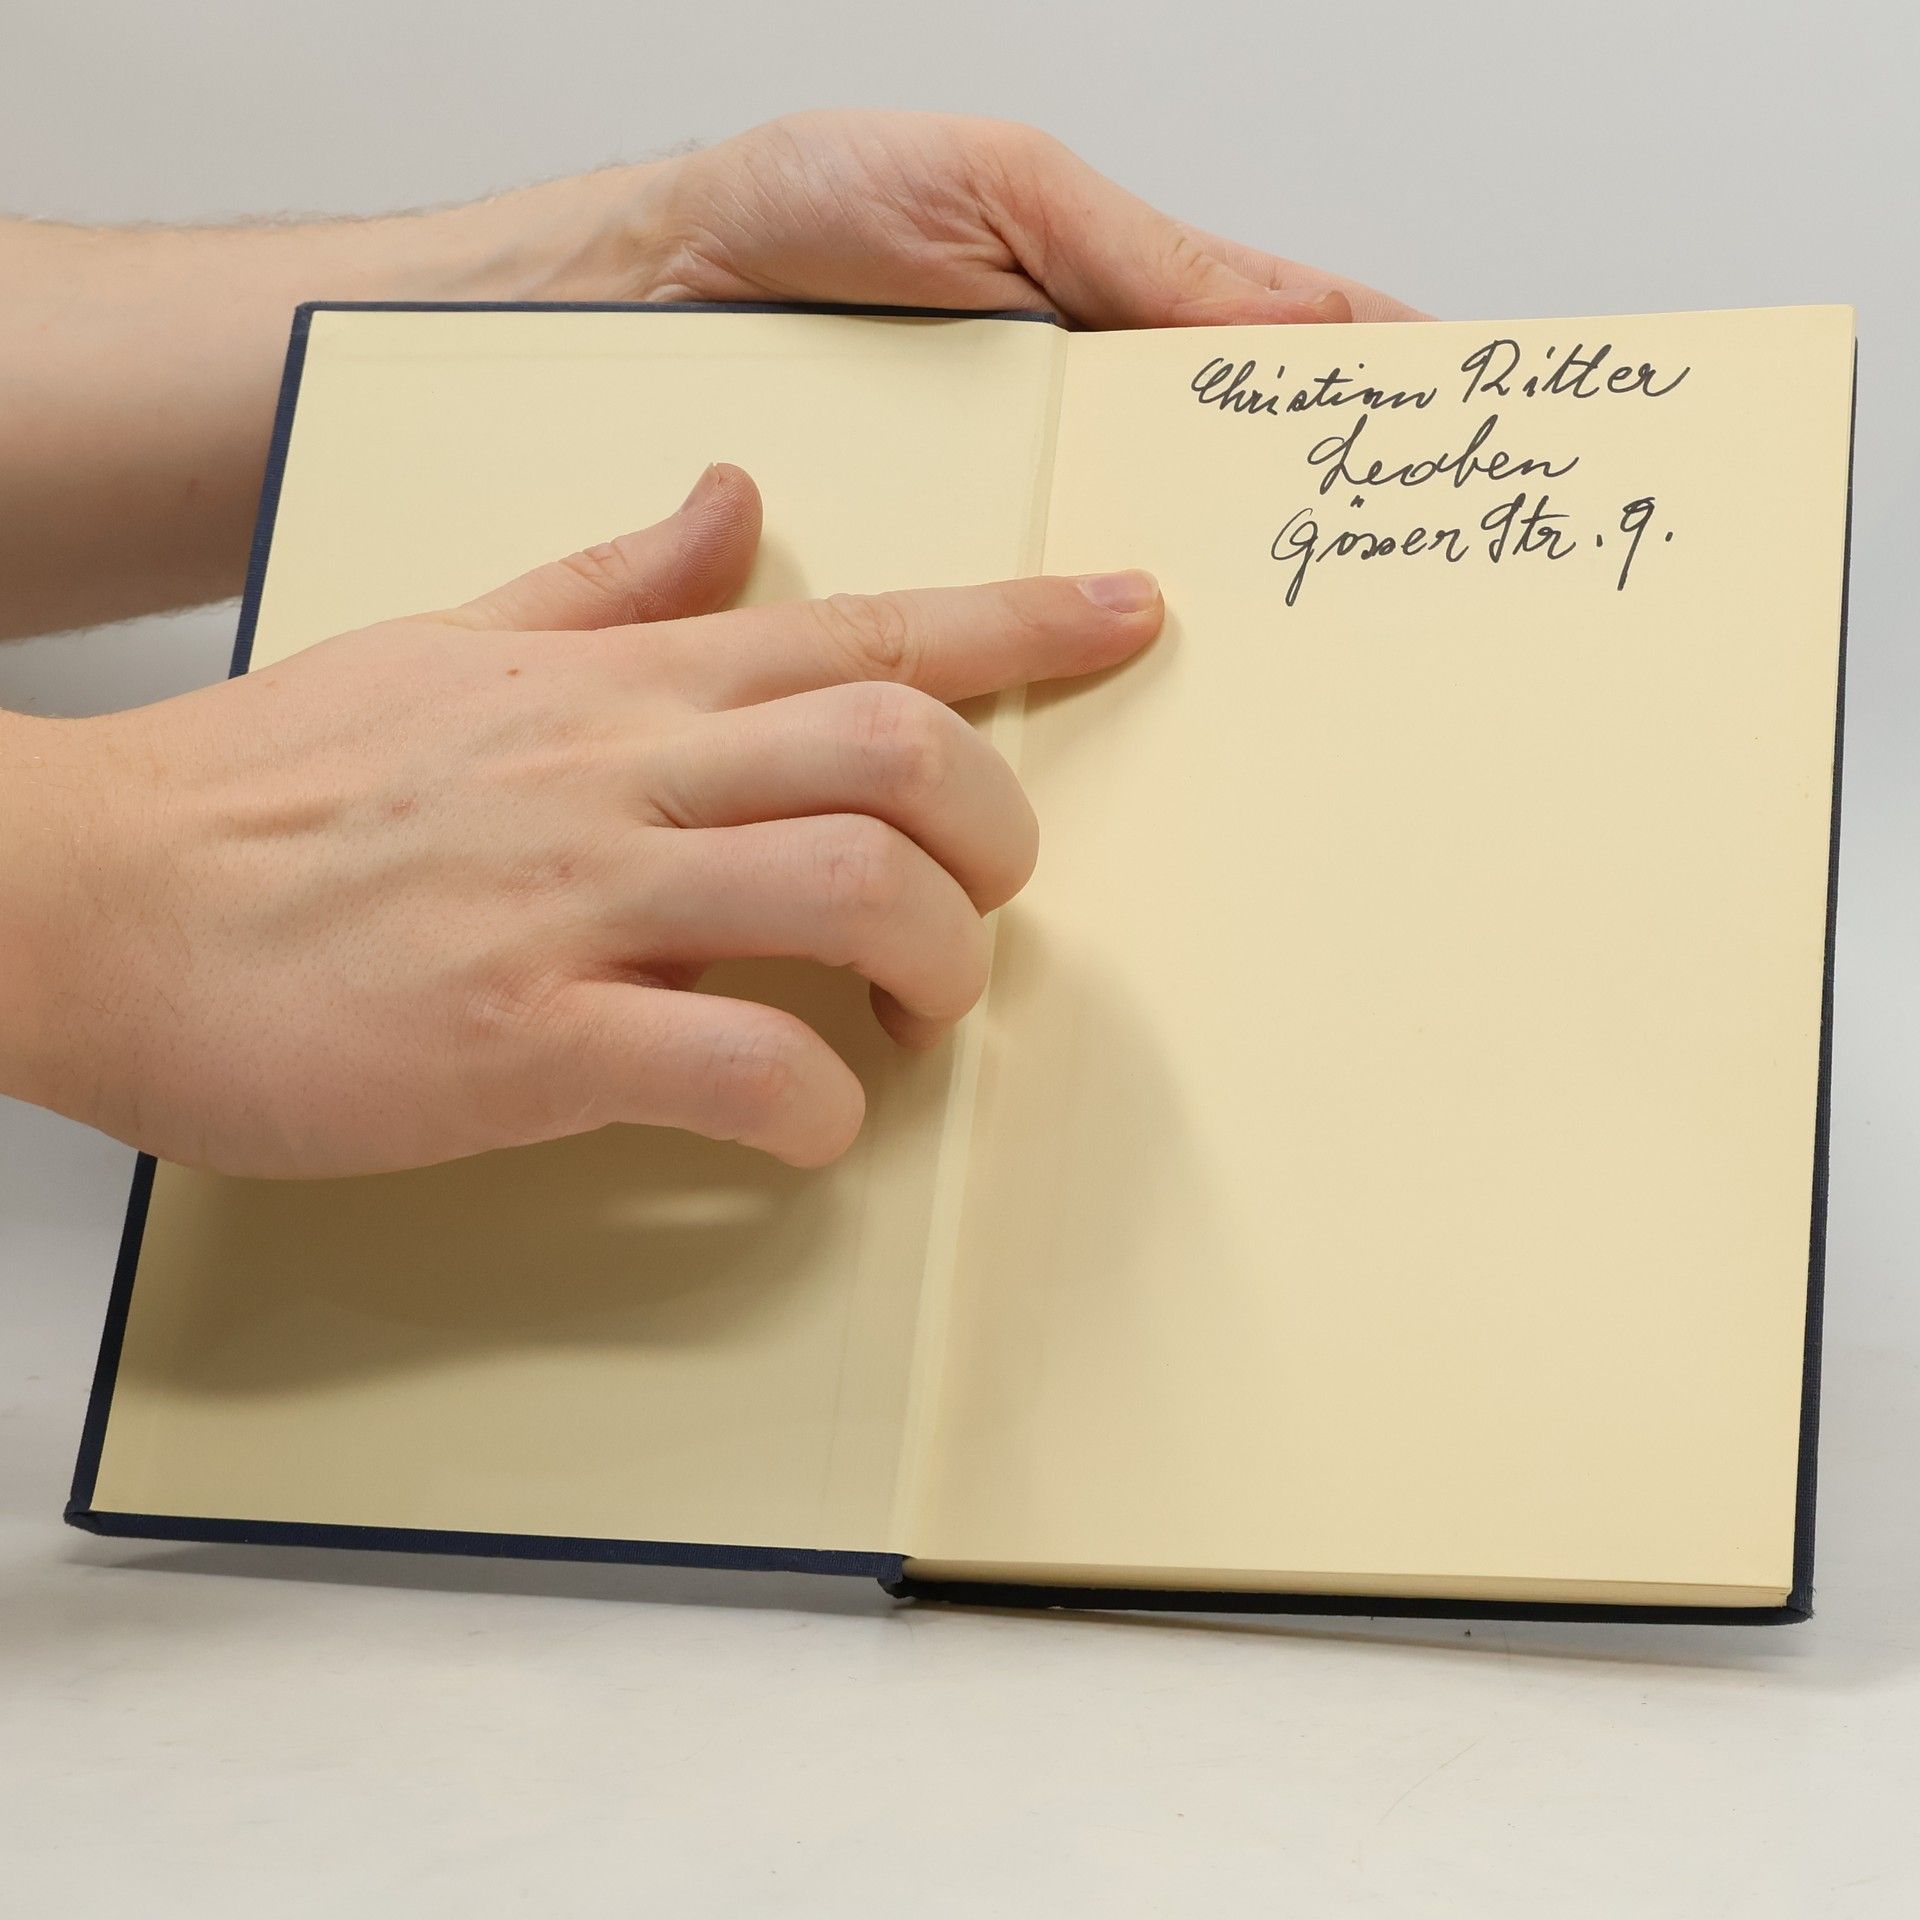 Christian Ritter
Leoben
Gösser Str. 9.